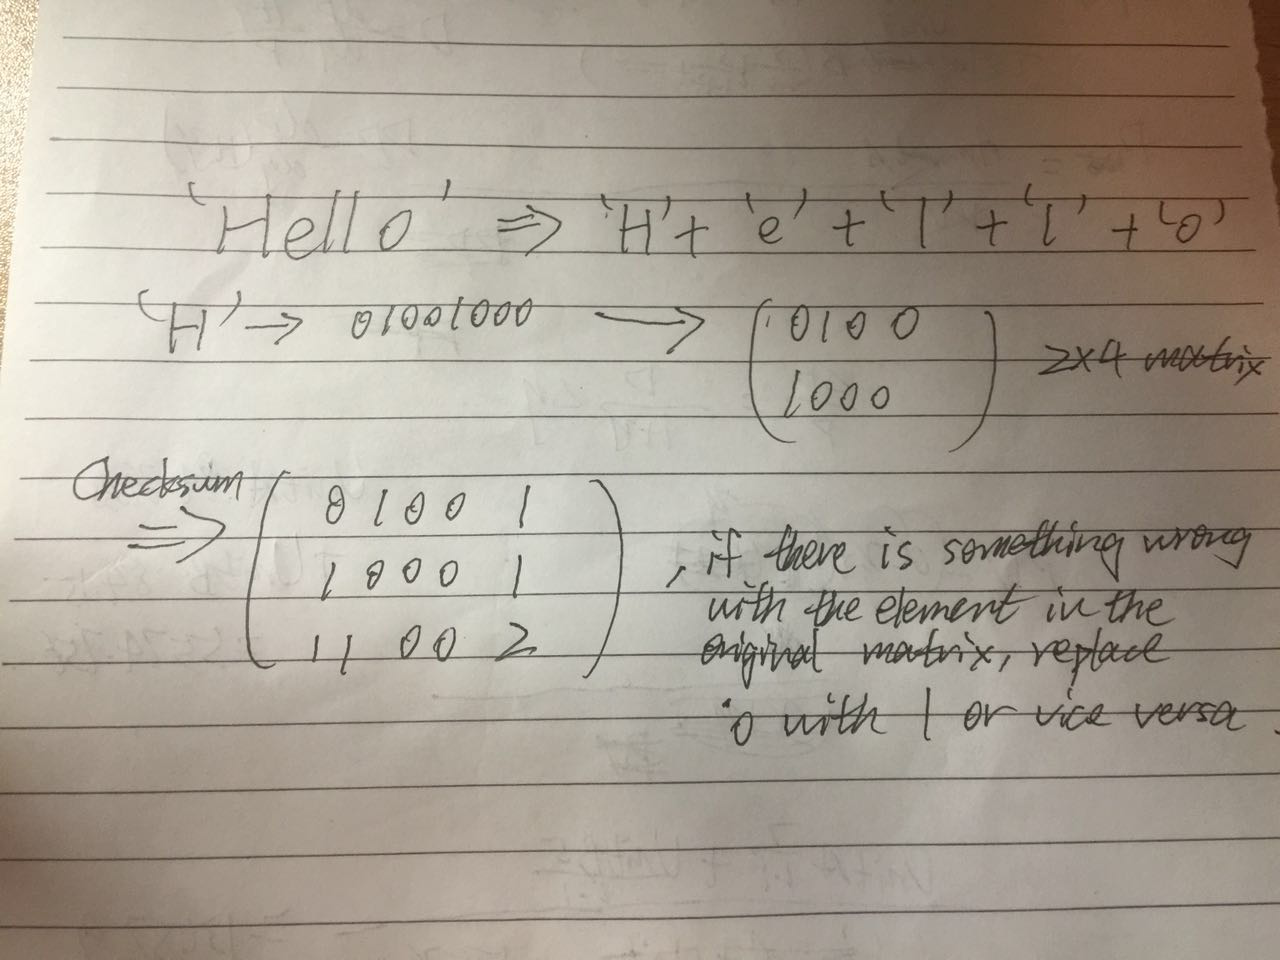 'Hello' ⇒ 'H' + 'e' + 'l' + 'l' + 'o'
'H' → 01001000 → (0100
1000) 2x4 matrix
Checksum
⇒ (0 1 0 0 1
1 0 0 0 1
1 1 0 0 2)
, if there is something wrong
with the element in the
original matrix, replace
0 with 1 or vice versa.